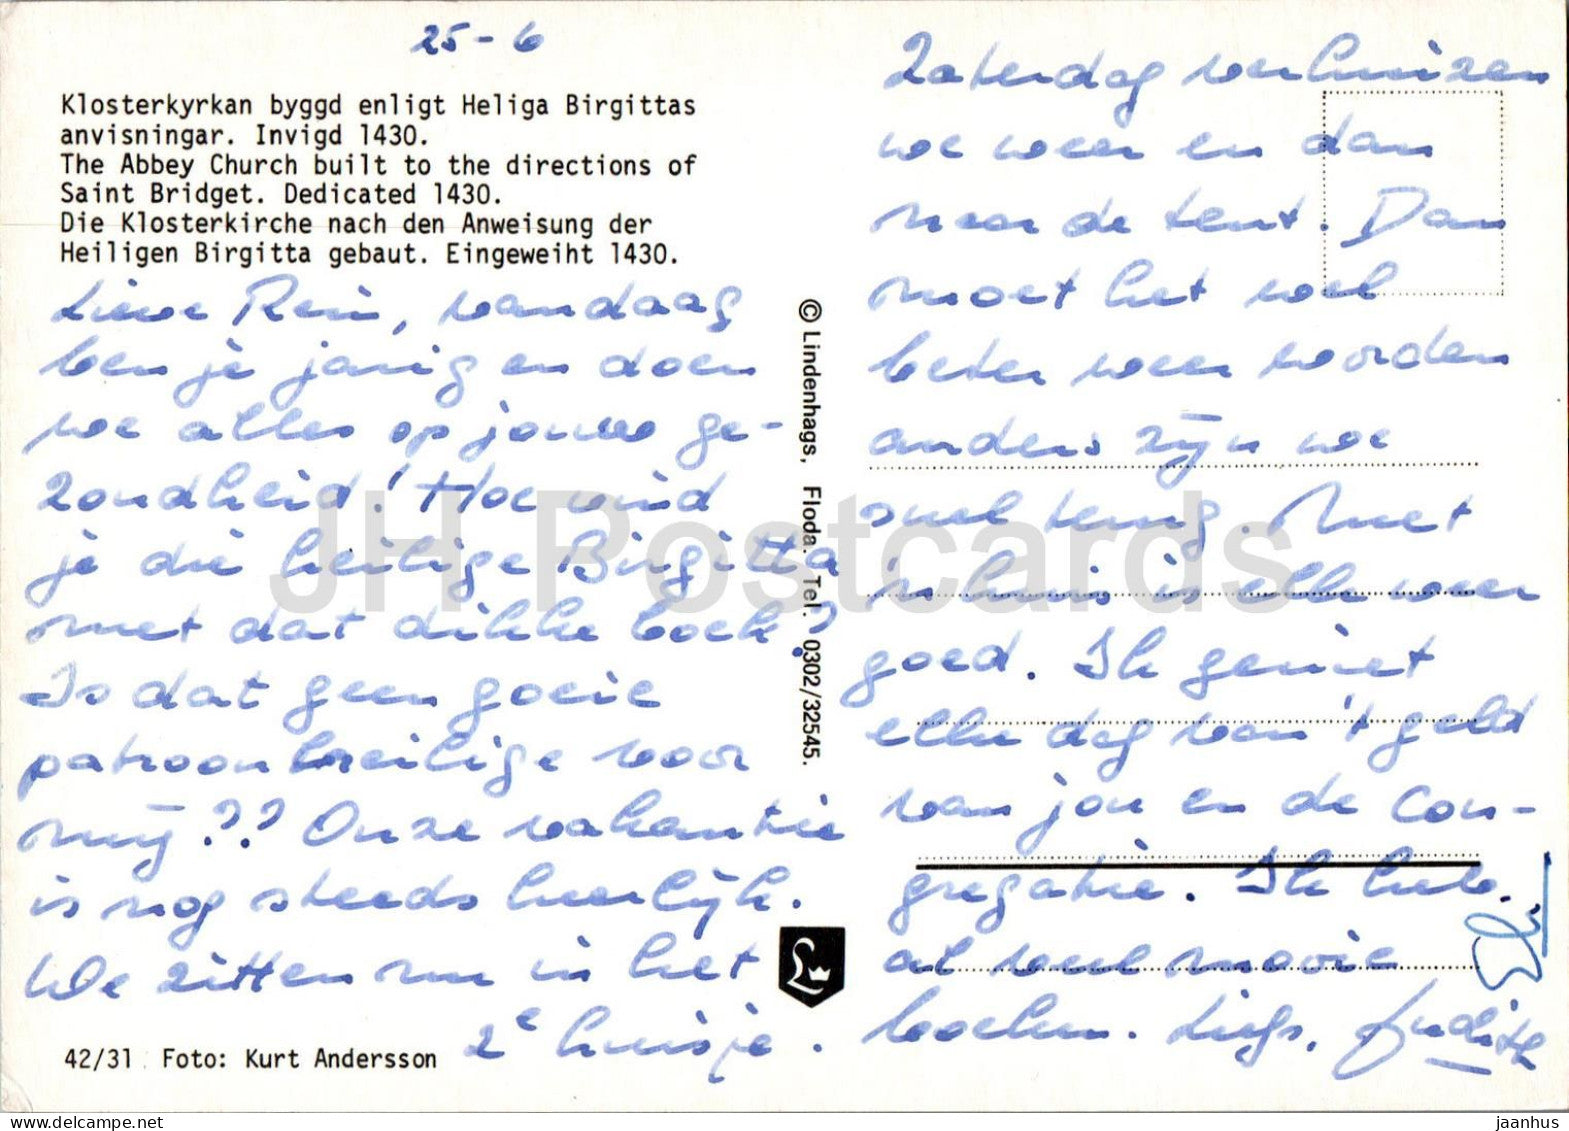 25-6
Klosterkyrkan byggd enligt Heliga Birgittas
anvisningar. Invigd 1430.
The Abbey Church built to the directions of
Saint Bridget. Dedicated 1430.
Die Klosterkirche nach den Anweisung der
Heiligen Birgitta gebaut. Eingeweiht 1430.
Lieve Rein, vandaag
ben je jarig en doen
we alles op jouw ge-
zondheid! Hoe vind
je die heilige Birgitta
met dat dikke boek?
Is dat geen goeie
patroonheilige voor
mij?? Onze vakantie
is nog steeds heerlijk.
We zitten nu in het
2e huisje.
42/31 Foto: Kurt Andersson
© Lindenhags, Floda. Tel. 0302/32545.
Zaterdag verhuizen
we weer en dan
naar de tent. Dan
moet het wel
beter weer worden
anders zijn we
snel terug. Met
'n huis is elk weer
goed. Ik geniet
elke dag van 't geld
van jou en de con-
gregatie. Ik heb
al veel mooie
boeken. Liefs, Judith
JH Postcards
jaanhus
www.delcampe.net